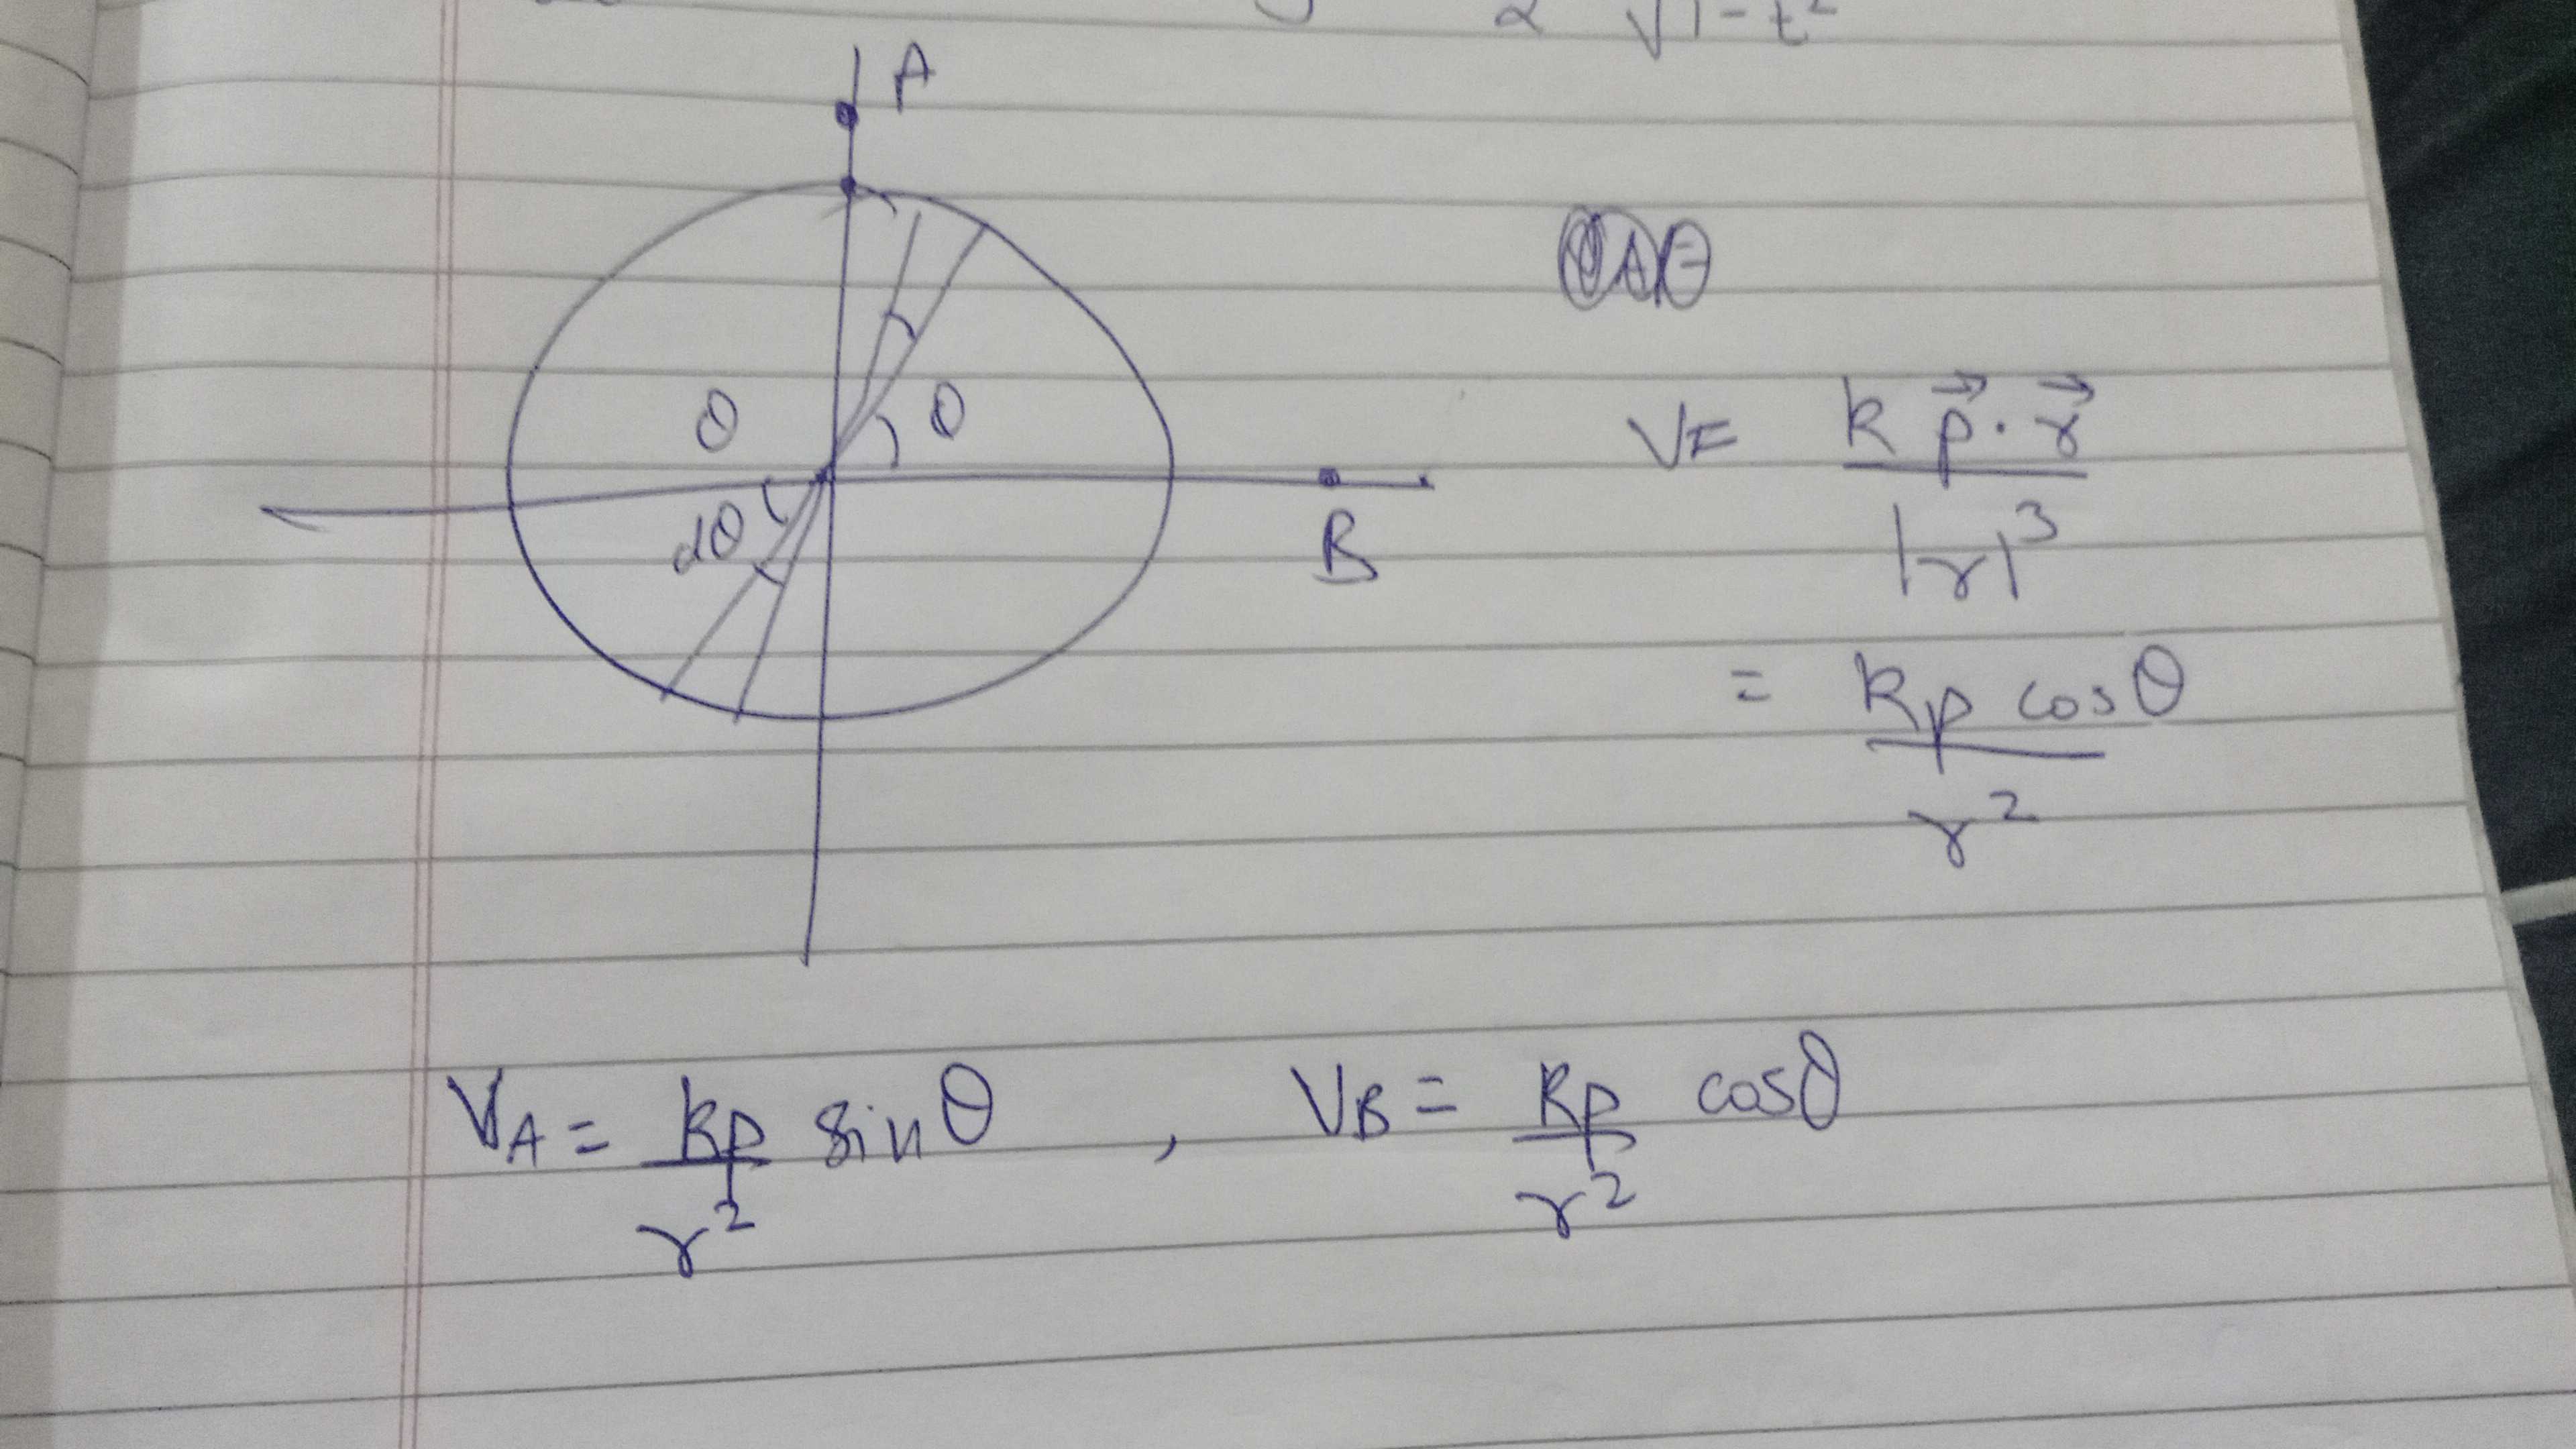 2 √1-t²
A
θ θ
V = k p⃗ · r⃗ / |r|³
dθ
B
= kp cosθ / r²
V_A = kp/r² sinθ , V_B = kp/r² cosθ